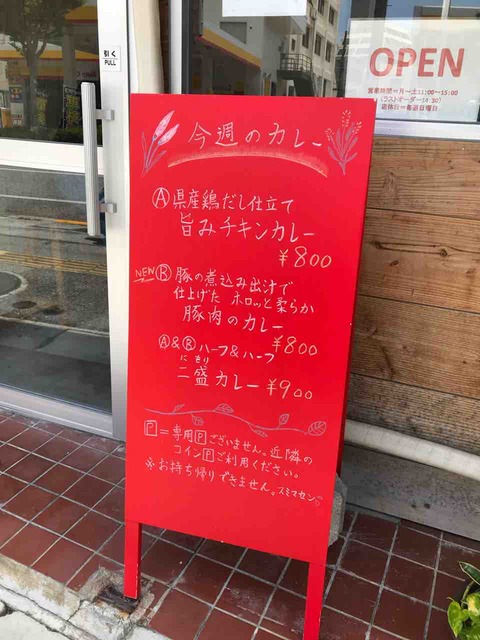 引く
PULL
OPEN
営業時間=月〜土11:00〜15:00
(ラストオーダー14:30)
定休日=毎週日曜日
今週のカレー
Ⓐ県産鶏だし仕立て
旨みチキンカレー
¥800
NEW Ⓑ 豚の煮込み出汁で
仕上げた ホロッと柔らか
豚肉のカレー
¥800
Ⓐ&Ⓑハーフ&ハーフ
にもり
二盛カレー ¥900
P=専用Pございません。近隣の
コインPご利用ください。
※お持ち帰りできません。スミマセン